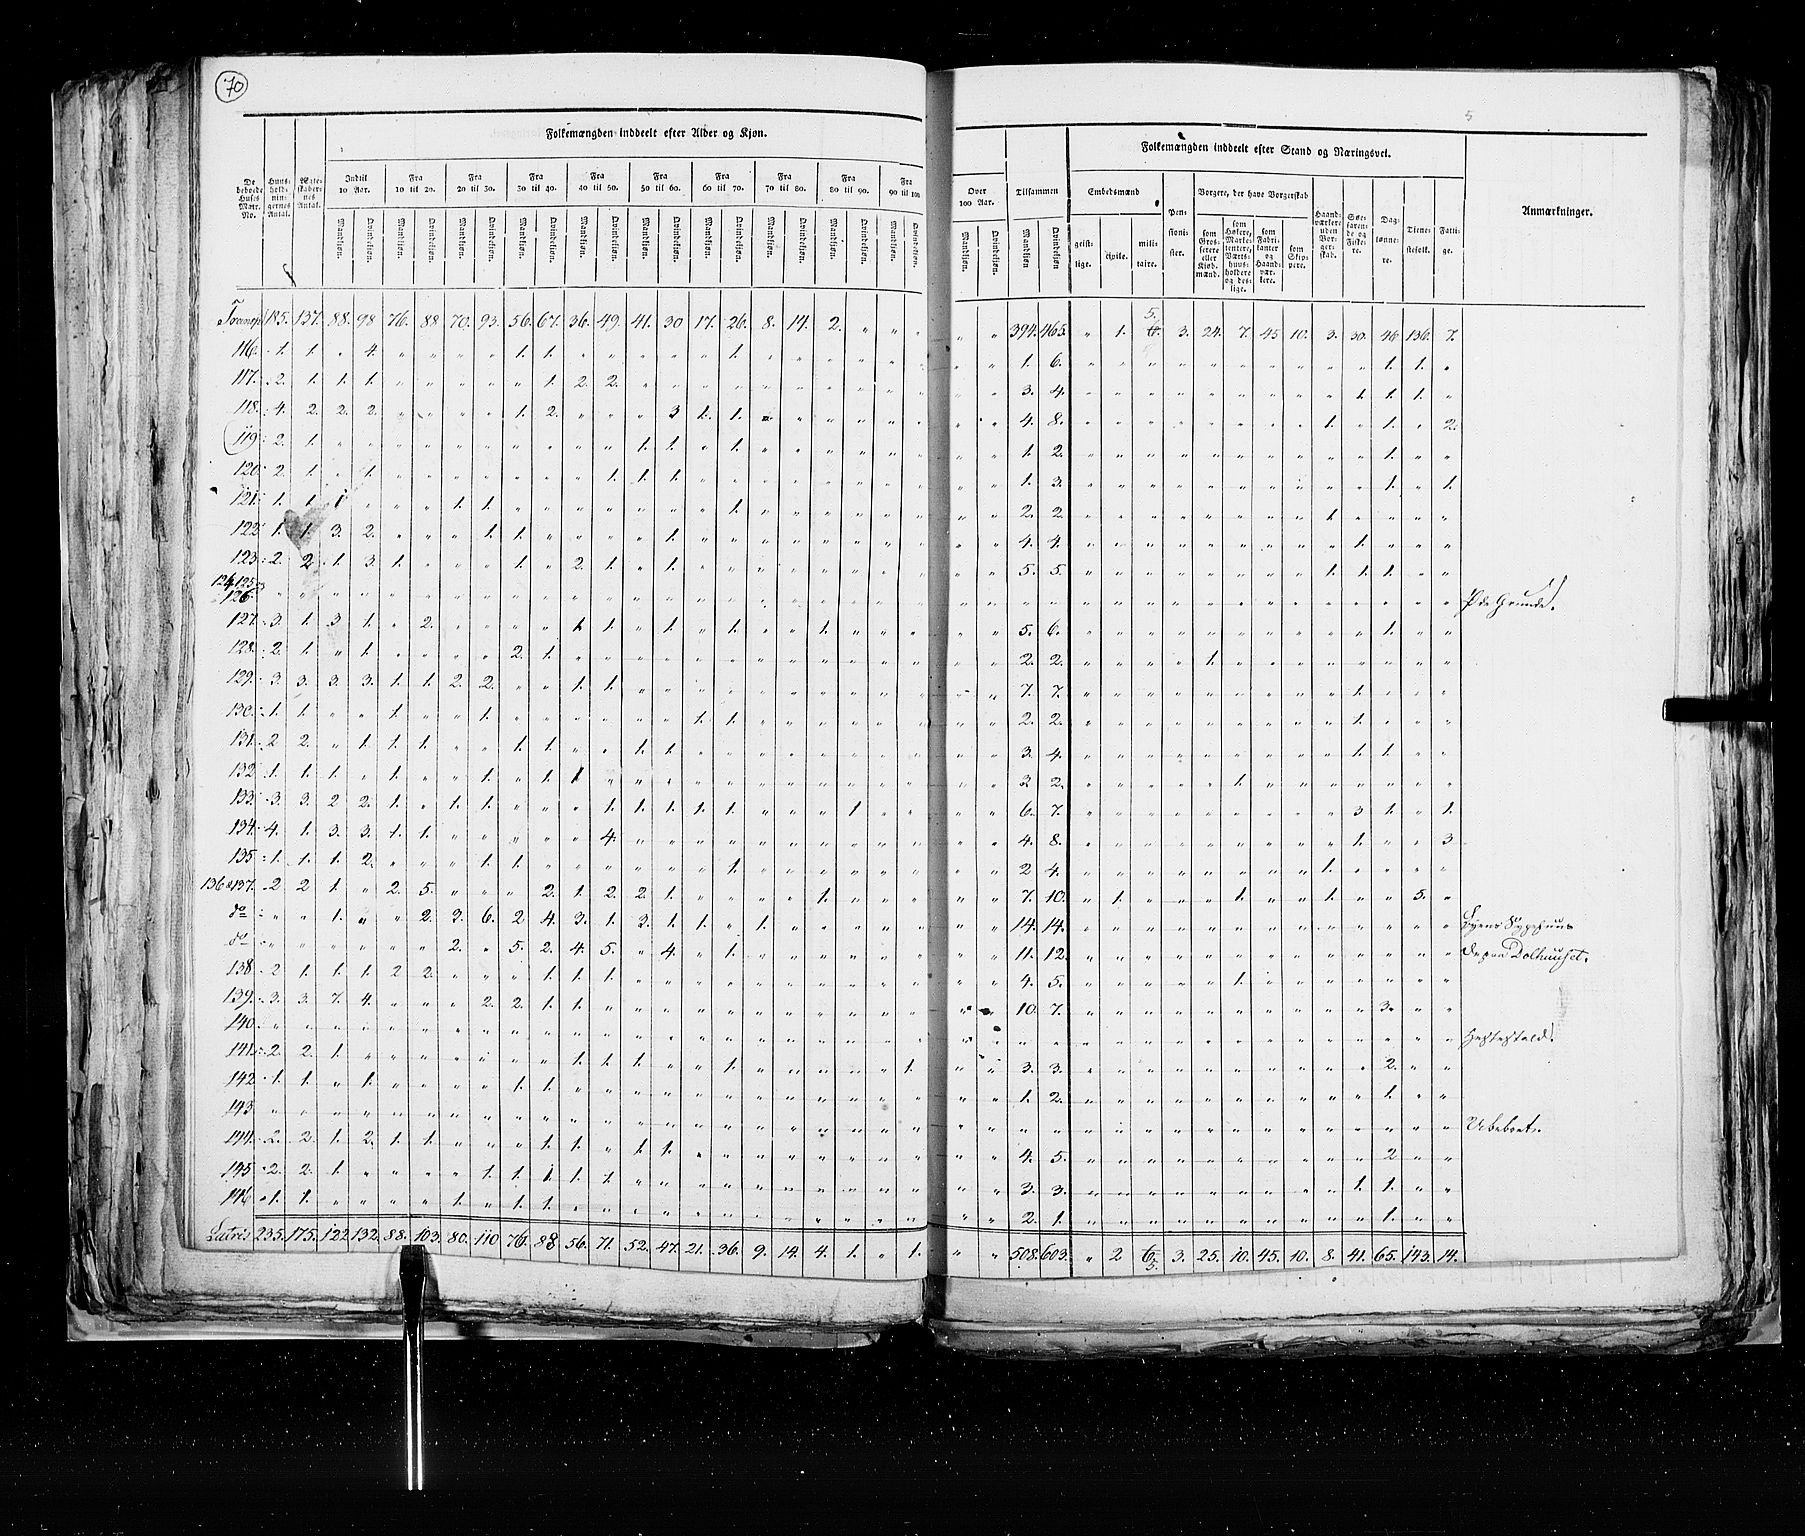 70
5
Folkemængden inddeelt efter Alder og Kjøn.
Folkemængden inddeelt efter Stand og Næringsvei.
De beboede Huses Matr. No.
Huusholdningernes Antal.
Ægteskabernes Antal.
Indtil 10 Aar.
Fra 10 til 20.
Fra 20 til 30.
Fra 30 til 40.
Fra 40 til 50.
Fra 50 til 60.
Fra 60 til 70.
Fra 70 til 80.
Fra 80 til 90.
Fra 90 til 100
Over 100 Aar.
Tilsammen
Mandkjøn. Qvindekjøn.
Embedsmænd
geistlige. civile. militaire.
Pensionister.
Borgere, der have Borgerskab
som Grosserere eller Kjøbmænd.
som Høkere, Marketentere, Værtshuusholdere og deslige.
som Fabrikanter og Haandværkere.
som Skippere.
Haandværkere uden Borgerskab.
Søefarende og Fiskere.
Daglønnere.
Tienestefolk.
Fattige.
Anmærkninger.
Transp. 185. 137. 88. 98 76. 88 70. 93. 56. 67. 36. 49. 41. 30 17. 26. 8. 14. 2. " " " " " 394. 465. " 1. 5. 3. 24. 7. 45 10. 3. 30. 46 136. 7.
116. 1. 1. " 4. " " " " 1. 1. " " " " " 1. " " " " " " " " 1. 6. " " " " " " " " " " 1. 1. "
117. 2. 1. 1. 1. " " " " " 1. 2. 2. " " " " " " " " " " " " 3. 4. " " " " " " " " " 1. 1. 1. "
118. 4. 2. 2. 2. " " " " 1. 2. " " " 3 1. 1. " " " " " " " " 4. 8. " " " " " " " " 1. " 1. " 2.
119. 2. 1. " " " " " " " " " " 1. 1. " 1. " " " " " " " " 1. 2. " " " " " " " " " " 1. " "
120. 2. 1. " 1. " " " " " " " 1. 1. 1. " " " " " " " " " " 1. 3. " " " " " " " " " " 1. " 1.
121. 1. 1. 1 " " " 1. 1. " " " " " " " 1. " " " " " " " " 2. 2. " " " " " " " " 1. " " " "
122. 1. 1. 3. 2. " " " 1. 1. " " " " 1. " " " " " " " " " " 4. 4. " " " " " " " " " 1. " " "
123. 2. 2. 1. 3. 1. " " " 1. " 2. 1. " 1. " " " " " " " " " " 5. 5. " " " " " " " " 1. 1. 1. " "
124, 125 og 126. Øde Grunde.
127. 3. 1. 3. 1. " 2. " " " " 1. 1. " 1. " 1. " " 1. " " " " " 5. 6. " " " " " " " " " " 1. " "
128. 2. 1. " 1. " " " " 2. 1. " " " " " " " " " " " " " " 2. 2. " " " " 1. " " " " " " " "
129. 3. 3. 3. 3. 1. 1. 2. 2. " " 1. 1. " " " " " " " " " " " " 7. 7. " " " " " " " " " 1. " " "
130. 1. 1. " " 1. " " 1. " " " " " " 1. 1. " " " " " " " " 2. 2. " " " " " " " " " 1. " " "
131. 2 2. " 1. 1. 1. " " 1. 1. " " 1. 1. " " " " " " " " " " 3. 4. " " " " " " " " " 1. 1. " "
132. 1. 1. 1. " 1. " " 1. " 1. 1 " " " " " " " " " " " " " 3 2. " " " " " 1. " " " " " " "
133. 3. 3. 2 2. 1. " 1. 1. " " " 1. 1. 1. 1. 1. " " " 1. " " " " 6. 7. " " " " " " " " " 3 1. " 1.
134. 4. 1. 3. 3. 1. 1. " " " " " 4. " " " " " " " " " " " " 4. 8. " " " " " " " " " 1. " " 3
135. 1. 1. 1. 2. " " " 1. 1. " " " " " " 1. " " " " " " " " 2 4. " " " " " " " " 1. " " " "
136 & 137. 2 2 1. " 2. 5. " " " 2. 1. 2. 2. 1. " " " " 1. " " " " " 7. 10. " 1. " " " 1. " " 1. " 1. 5. "
do " " 1. " " 2. 3. 6. 2 4. 3. 1. 3. 1. 1. " 1. " " " " " " " 14. 14. " " " " " " " " " " " " " Fyens Sygehuus
do " " " " " " 2. " 5. 2. 4. 5. " 4. " 1. " " " " " " " " 11. 12. " " " " " " " " " " " " " Dolhuuset.
138. 2 1. 1. 1. 2 2. " " " 1. 1. 1. " " " " " " " " " " " " 4. 5. " " " " " 1. " " " " " " "
139. 3. 3. 7. 4. " " " 2. 2. 1. 1. " " " " " " " " " " " " " 10. 7. " " " " " " " " " " 3. " "
140. Hestestald.
141. 2. 2. 1. " " " " " " " 1. 1. 1. " " 1. " " " " " 1. " " 3. 3. " " " " " " " " " " 2. " "
142. 1. 1. " 1. " " " " 1. 1. " " " " " " " " " " " " " " 1. 2. " " " " " " " " " " 1. " "
143. Ubeboet.
144. 2. 2. 1. 2. 1. 1. " " " 1. 1. " 1. 1. " " " " " " " " " " 4. 5. " " " " " " " " " " 2 " "
145 2. 2. 1. " " " " 1. 1. 1. 1. 1. " " " " " " " " " " " " 3. 3. " " " " " " " " " 1. 1. " "
146 1. 1. " " " " 1. " 1. 1. " " " " " " " " " " " " " " 2. 1. " " " " " " " " " " 1. " "
Latris 235. 175. 122. 132. 88. 103. 80. 110 76. 88 56. 71. 52. 47. 21. 36. 9. 14. 4. 1. " 1. " " 508. 603. " 2 6 5. 3. 25. 10. 45. 10. 8. 41. 65. 143. 14.